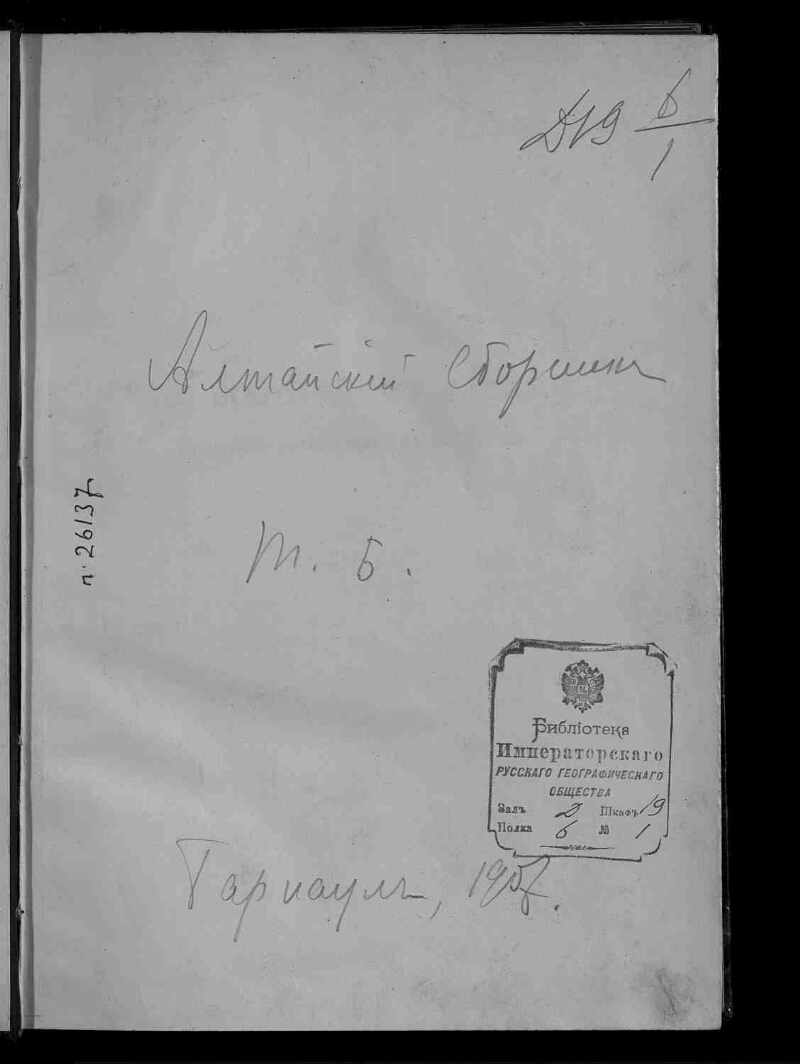 Д 19 6/1
Алтайский Сборникъ
п. 26137
Т. 6.
Библіотека
Императорскаго
РУССКАГО ГЕОГРАФИЧЕСКАГО
ОБЩЕСТВА
Залъ Д Шкафъ 19
Полка 6 № 1
Барнаулъ, 1907.